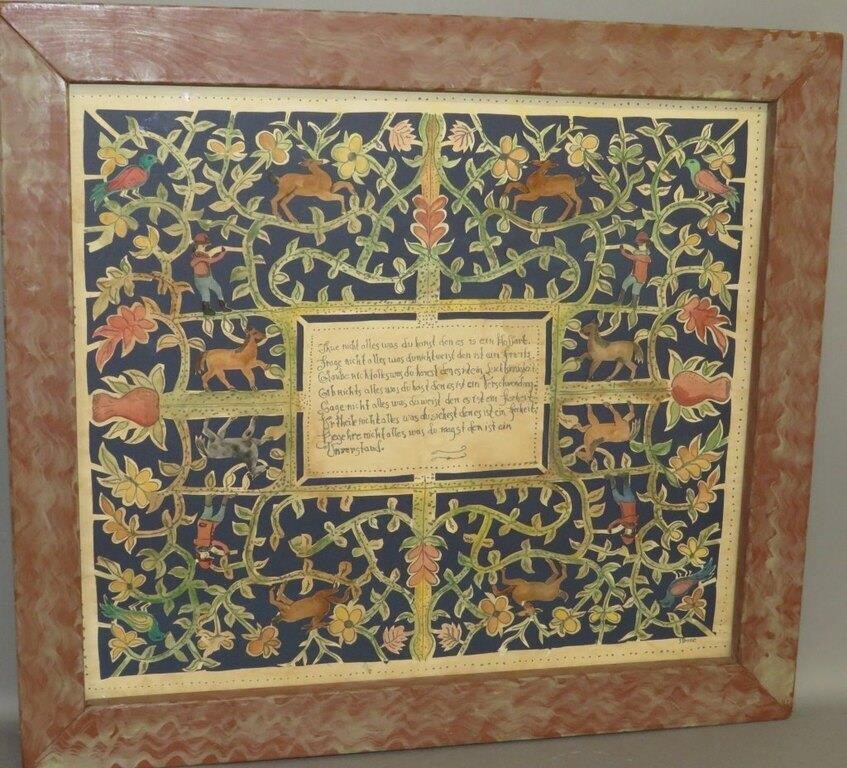 Thue nicht alles was du kanst den es is ein Hoffart.
Frage nicht alles was du nicht weist den ist ein
Glaube nicht alles was du horest den es ist ein
Gib nichts alles was du hast den es ist ein Verschwendung
Sage nicht alles was du weist den es ist ein Thorheit
Urtheile nicht alles was du siehest den es ist ein
Begehre nicht alles was du magst den ist ain
Unverstand.